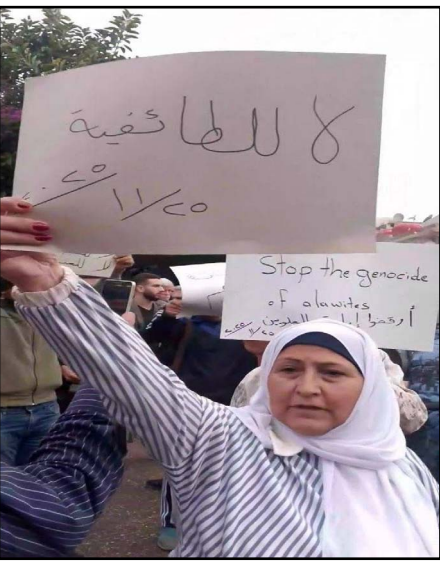 لا للطائفية
٢٥/١١/٢٠٢٥
Stop the genocide
of alawites
أوقفوا إبادة العلويين